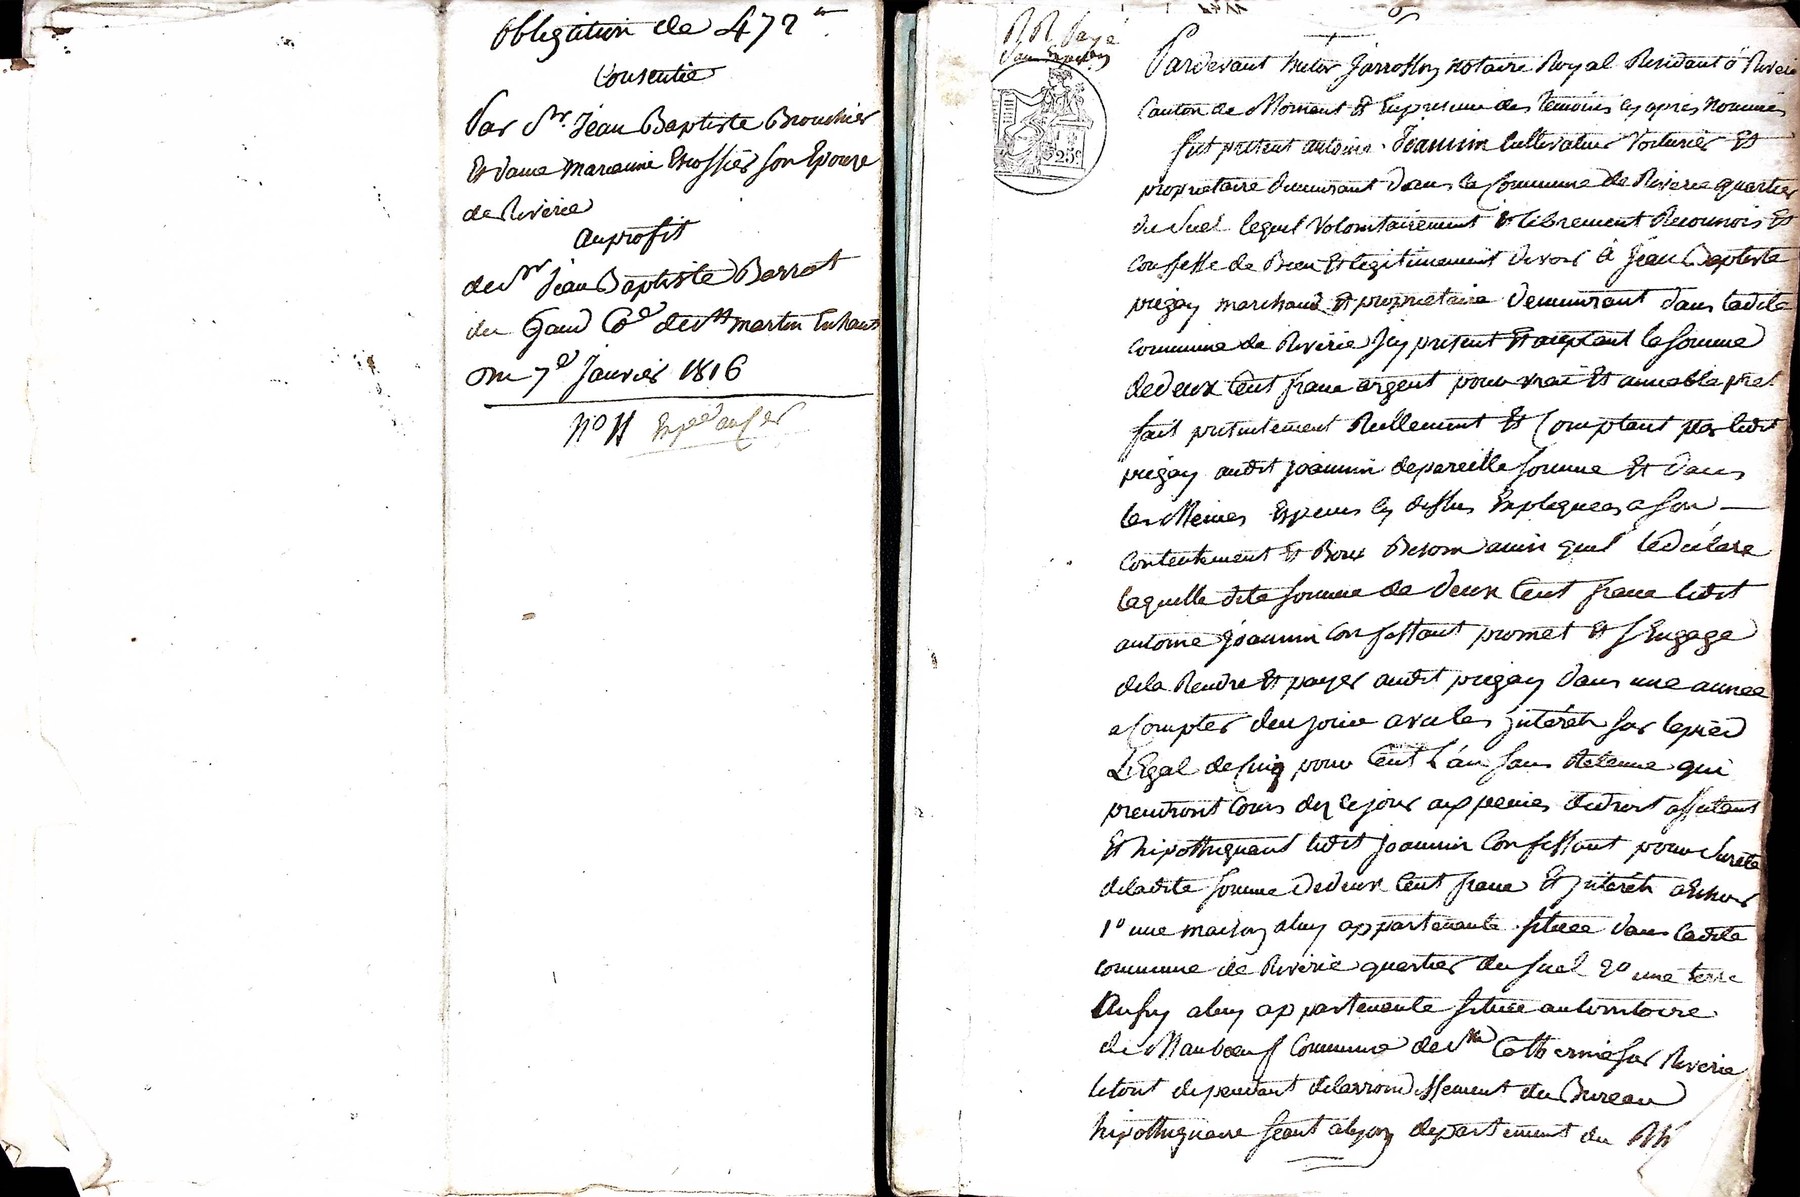 obligation de 472 ᶠʳ
Consentie
Par Sr. Jean Baptiste Brouchier
Et dame marianne Escoffier son Epouse
de Riverie
au profit
de Sr Jean Baptiste Barrat
du Gand Cⁿᵉ de St martin Enhaut
Du 7e Janvier 1816
No 11 Expéé
R R Payé
25c
Pardevant hector Jarrosson notaire Royal Residant à Riverie
Canton de Mornant Et En presence des temoins cy après nommés
fut présent antoine Joannin Cultivateur Voiturier Et
propriétaire demeurant dans la Commune de Riverie quartier
du Suel lequel Volontairement Et librement Reconnois Et
Confesse de Bien Et legitimement devoir à Jean Baptiste
marchand Et propriétaire demeurant dans ladite
commune de Riverie Icy présent Et acceptant la somme
de deux Cent franc argent pour vrai Et amiable prêt
fait presentement Reellement Et Comptant par ledit
audit joannin de pareille somme Et dans
les Mêmes Espèces cy dessus Expliquées a son
Contentement Et Bons Besoin ainsi quil le déclare
laquelle dite somme de deux Cent franc ledit
antoine joannin Confessant promet Et s'Engage
de la Rendre Et payer audit dans une année
a Compter de ce jour avec les intérêts sur le pied
L'Egal de Cinq pour Cent L'an sans Retenue qui
prendront Cours dez ce jour aux peines de droit affectant
Et hipothéquant ledit joannin Confessant pour Sureté
de ladite somme de deux Cent franc Et intérêts a Echoir
1o une maison a luy appartenante située dans ladite
commune de Riverie quartier du Suel 2o une terre
a luy appartenante située au territoire
de Maubœuf Commune de Ste Catherine sur Riverie
le tout dependant de l'arrondissement du Bureau
hipothéquaire séant a Lyon departement du Rh